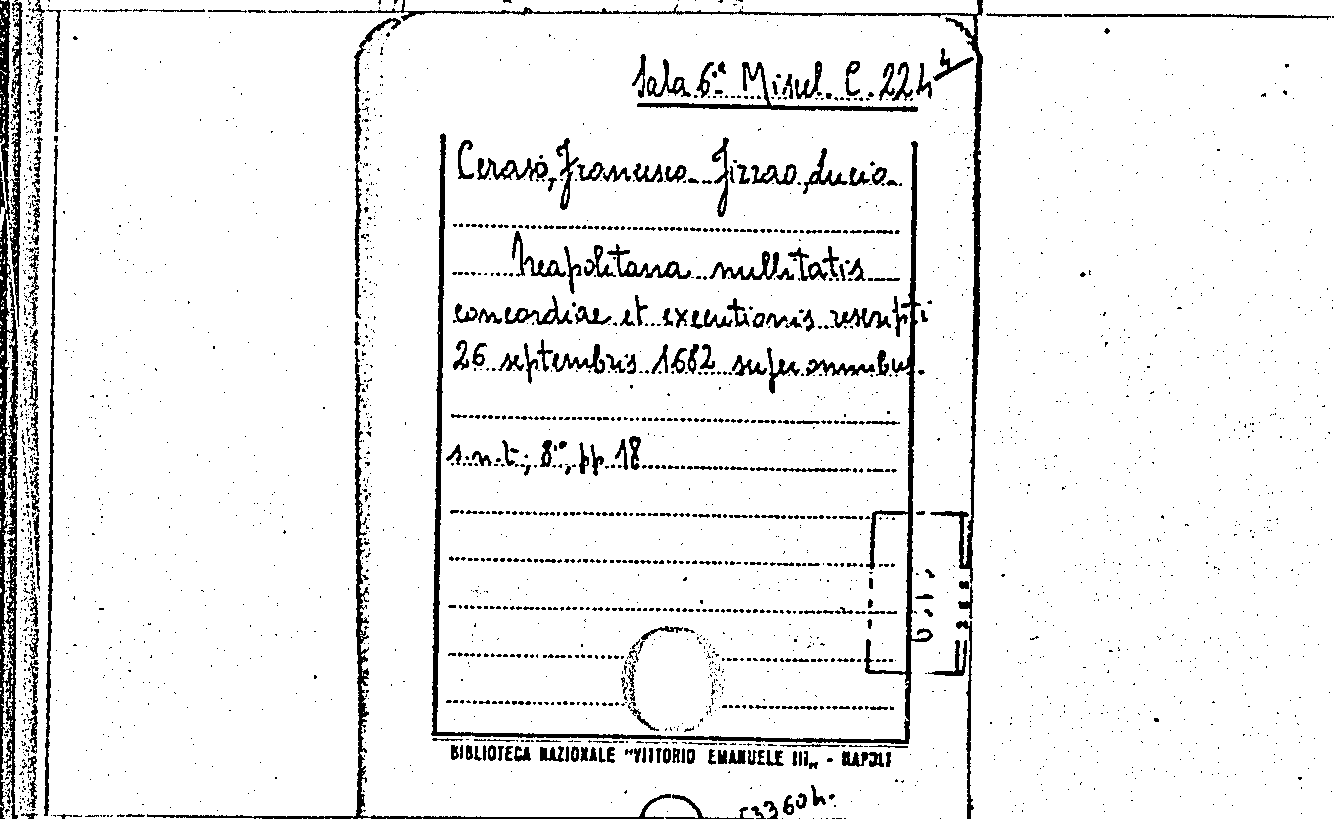 Sala 6.ª Miscel. C. 22 4/4
Ceraso, Francesco - Fizzao, Lucio -
Neapolitana nullitatis
concordiae et executionis rescripti
26 septembris 1682 super omnibus.
s.n.t; 8°, pp 18
BIBLIOTECA NAZIONALE "VITTORIO EMANUELE III„ - NAPOLI